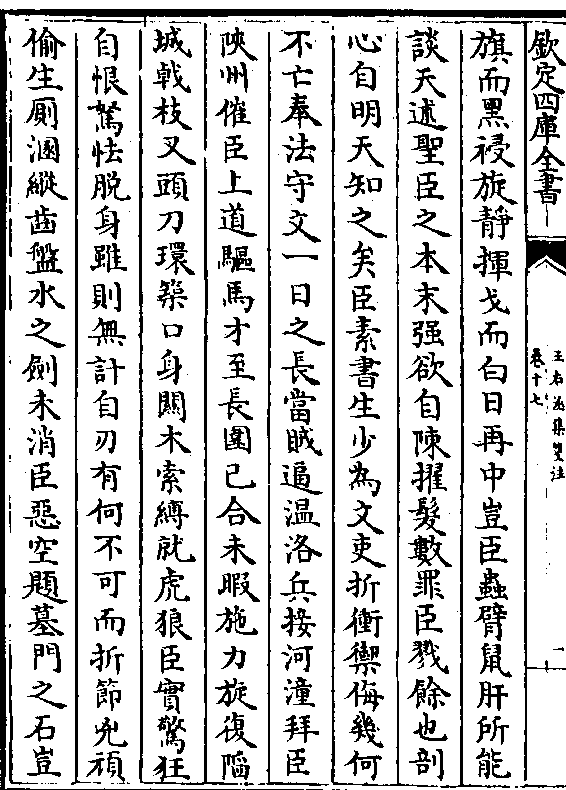 欽定四庫全書
王右丞集箋注
卷十七
一
旗而黑祲旋靜揮戈而白日再中豈臣蟲臂鼠肝所能
談天述聖臣之本末强欲自陳擢髮數罪臣戮餘也剖
心自明天知之矣臣素書生少為文吏折衝禦侮幾何
不亡奉法守文一日之長當賊逼温洛兵接河潼拜臣
陜州催臣上道驅馬才至長圍已合未暇施力旋復陷
城戟枝叉頭刀環築口身關木索縛就虎狼臣實驚狂
自恨駑怯脱身雖則無計自刃有何不可而折節兇頑
偷生厠溷縱齒盤水之劍未消臣惡空題墓門之石豈